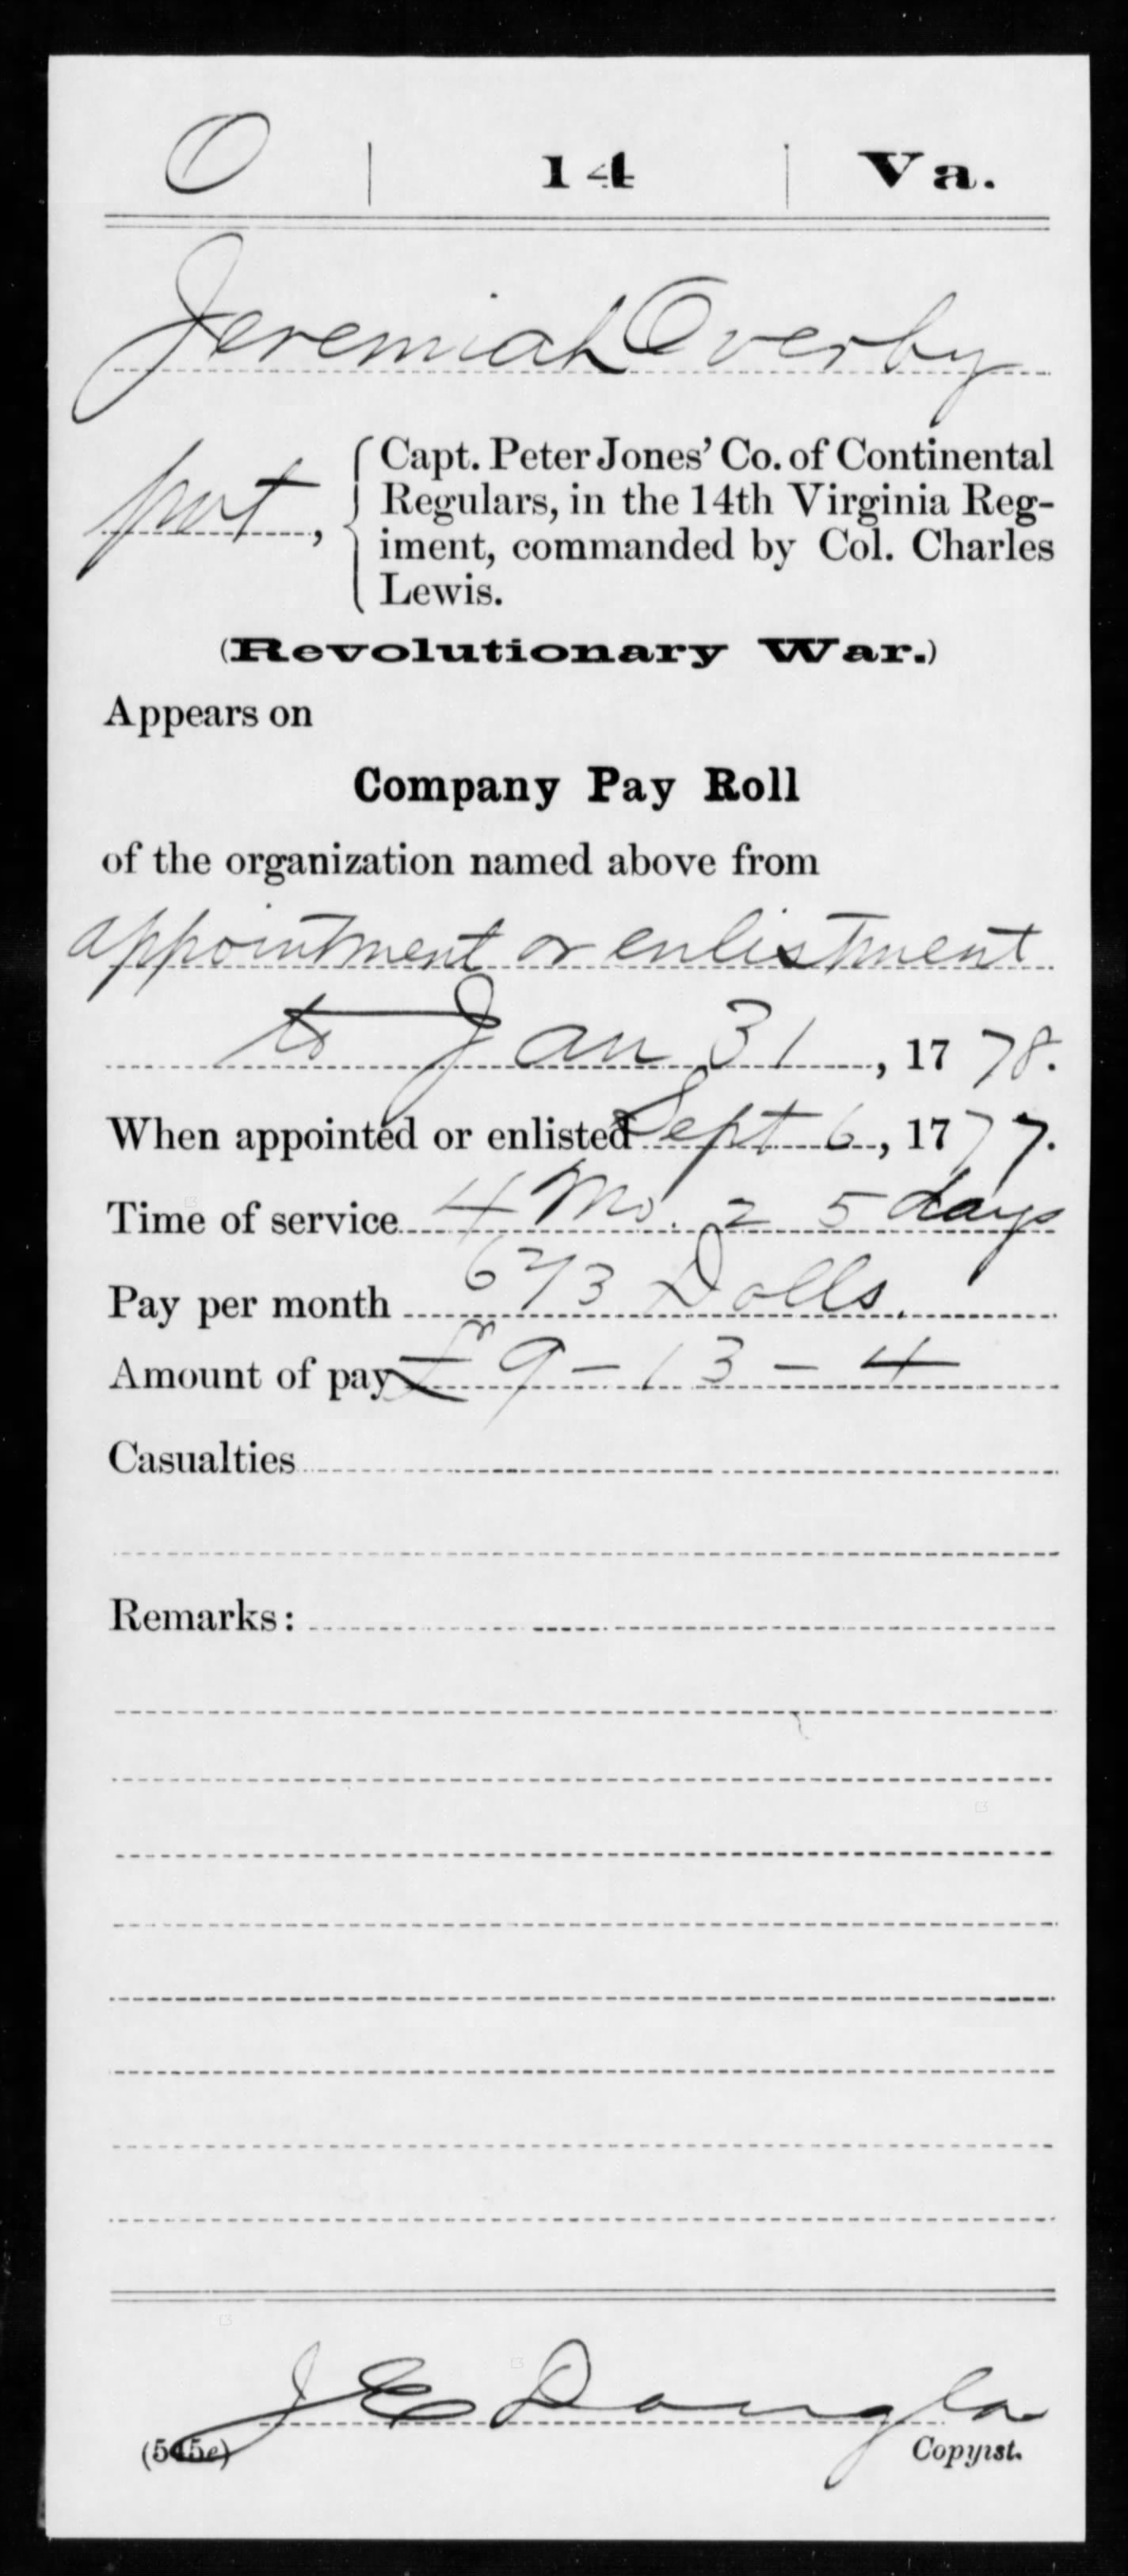 O | 14 | Va.
Jeremiah Overby
pvt, Capt. Peter Jones' Co. of Continental
Regulars, in the 14th Virginia Reg-
iment, commanded by Col. Charles
Lewis.
(Revolutionary War.)
Appears on
Company Pay Roll
of the organization named above from
appointment or enlistment
to Jan 31, 1778.
When appointed or enlisted Sept 6, 1777.
Time of service 4 Mo. 25 days
Pay per month 6 2/3 Dolls.
Amount of pay £ 9 - 13 - 4
Casualties
Remarks:
J E Douglas
(545e) Copyist.